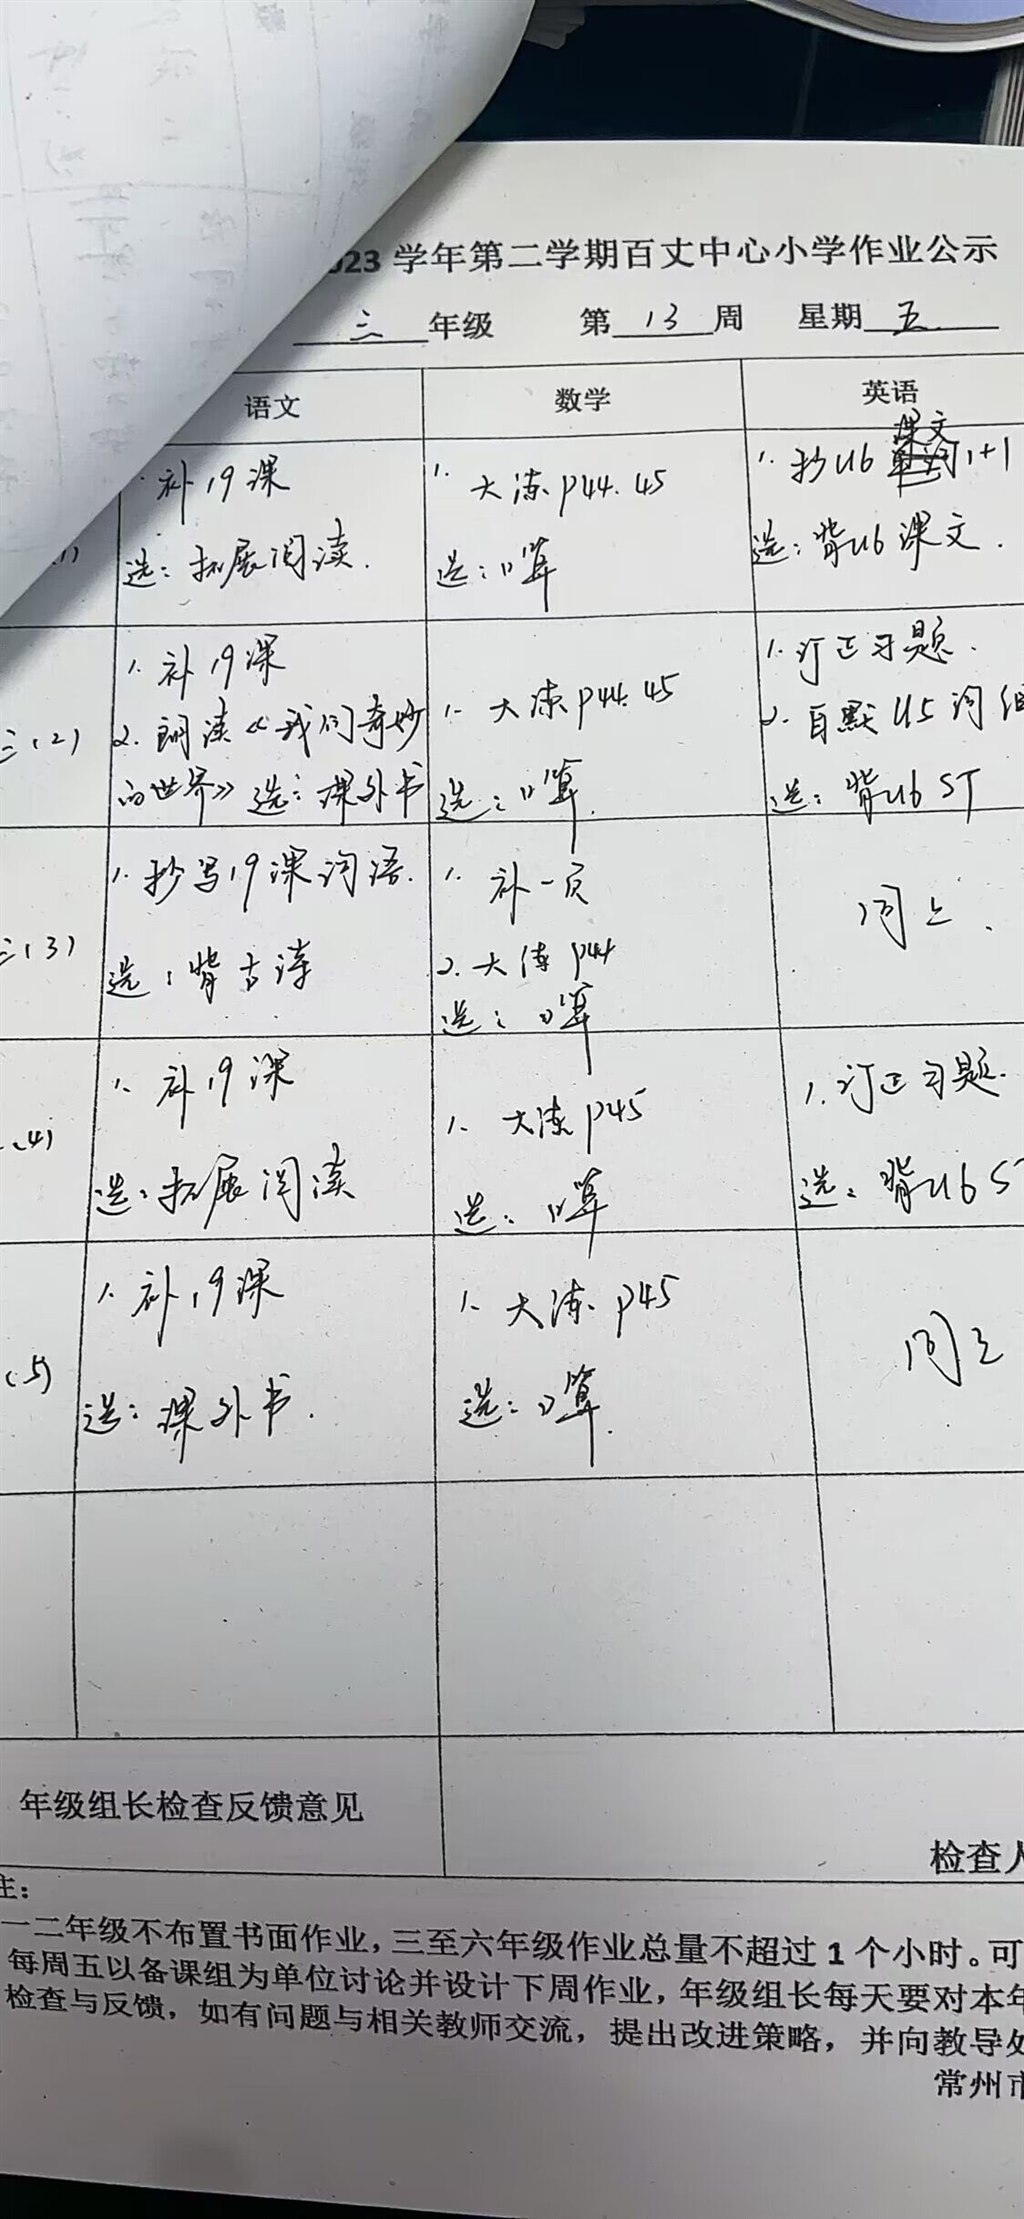 023 学年第二学期百丈中心小学作业公示
三 年级 第 13 周 星期 五
语文 数学 英语
补19课
选：拓展阅读.
1. 大练P44.45
选：口算
课文
1. 抄U6 单词1+1
选：背U6课文.
三(2)
1. 补19课
2. 朗读《我们奇妙
的世界》 选：课外书
1. 大练P44.45
选：口算.
1. 订正习题.
2. 自默U5词组
选：背U6 ST
三(3)
1. 抄写19课词语.
选：背古诗
1. 补一页
2. 大练P44
选：口算
同上.
(4)
1. 补19课
选：拓展阅读
1. 大练P45
选：口算
1. 订正习题.
选：背U6 ST
(5)
1. 补19课
选：课外书.
1. 大练P45
选：口算.
同上
年级组长检查反馈意见
检查人
注：
一二年级不布置书面作业，三至六年级作业总量不超过 1 个小时。可
每周五以备课组为单位讨论并设计下周作业，年级组长每天要对本年
检查与反馈，如有问题与相关教师交流，提出改进策略，并向教导处
常州市